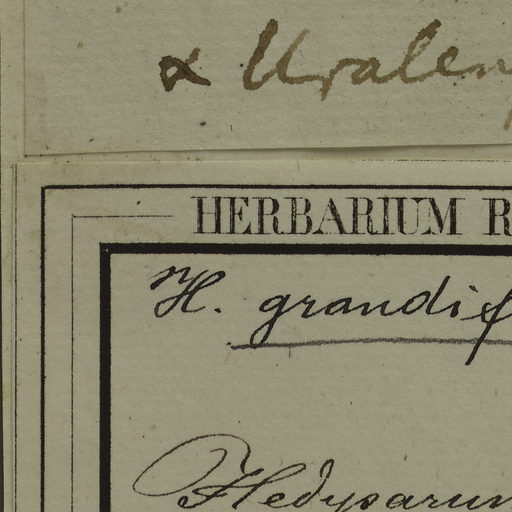 α Uralen
HERBARIUM R
H. grandif
Hedysarum